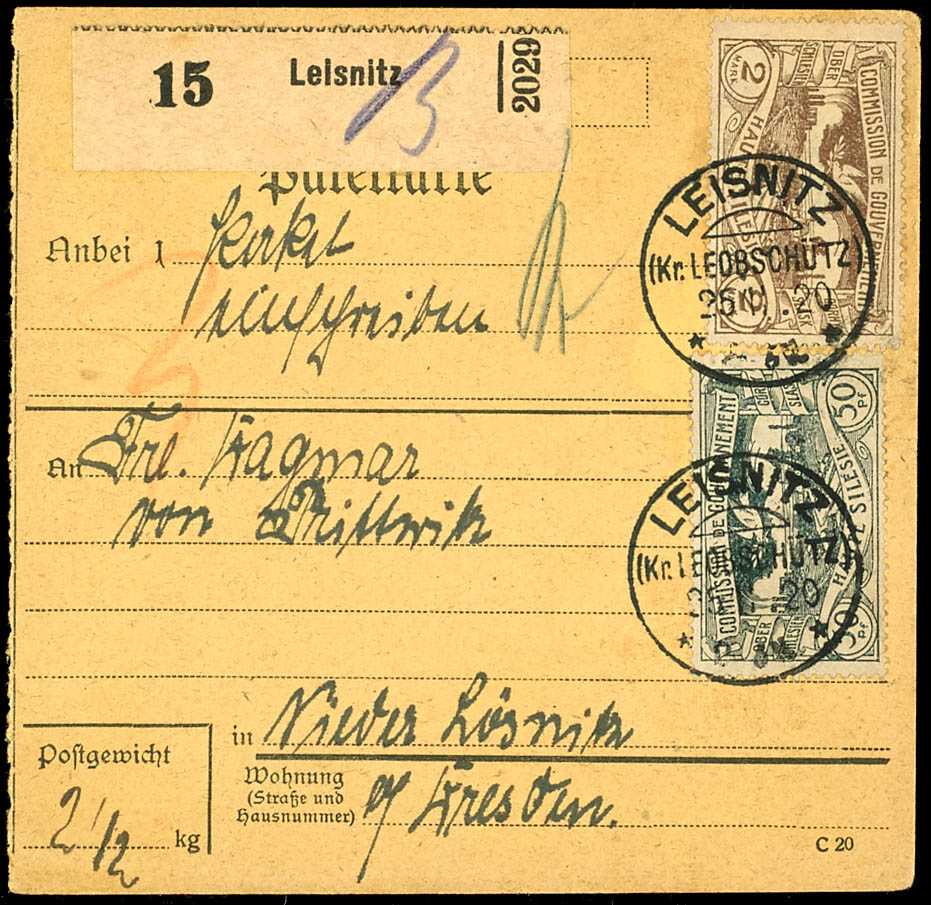 15 Leisnitz 2029
Paketkarte
Anbei 1 Paket
einschreiben
An Frl. Dagmar
von Prittwitz
in Nieder Lösnitz
Wohnung
(Straße und
Hausnummer)
b/ Dresden.
Postgewicht
2 1/2 kg
C 20
2 MARK
COMMISSION DE GOUVERNEMENT
OBER
SCHLESIEN
LEISNITZ
(Kr. LEOBSCHÜTZ)
50 Pf
COMMISSION DE GOUVERNEMENT
HAUTE SILESIE
OBER
SCHLESIEN
50 Pf
LEISNITZ
(Kr. LEOBSCHÜTZ)